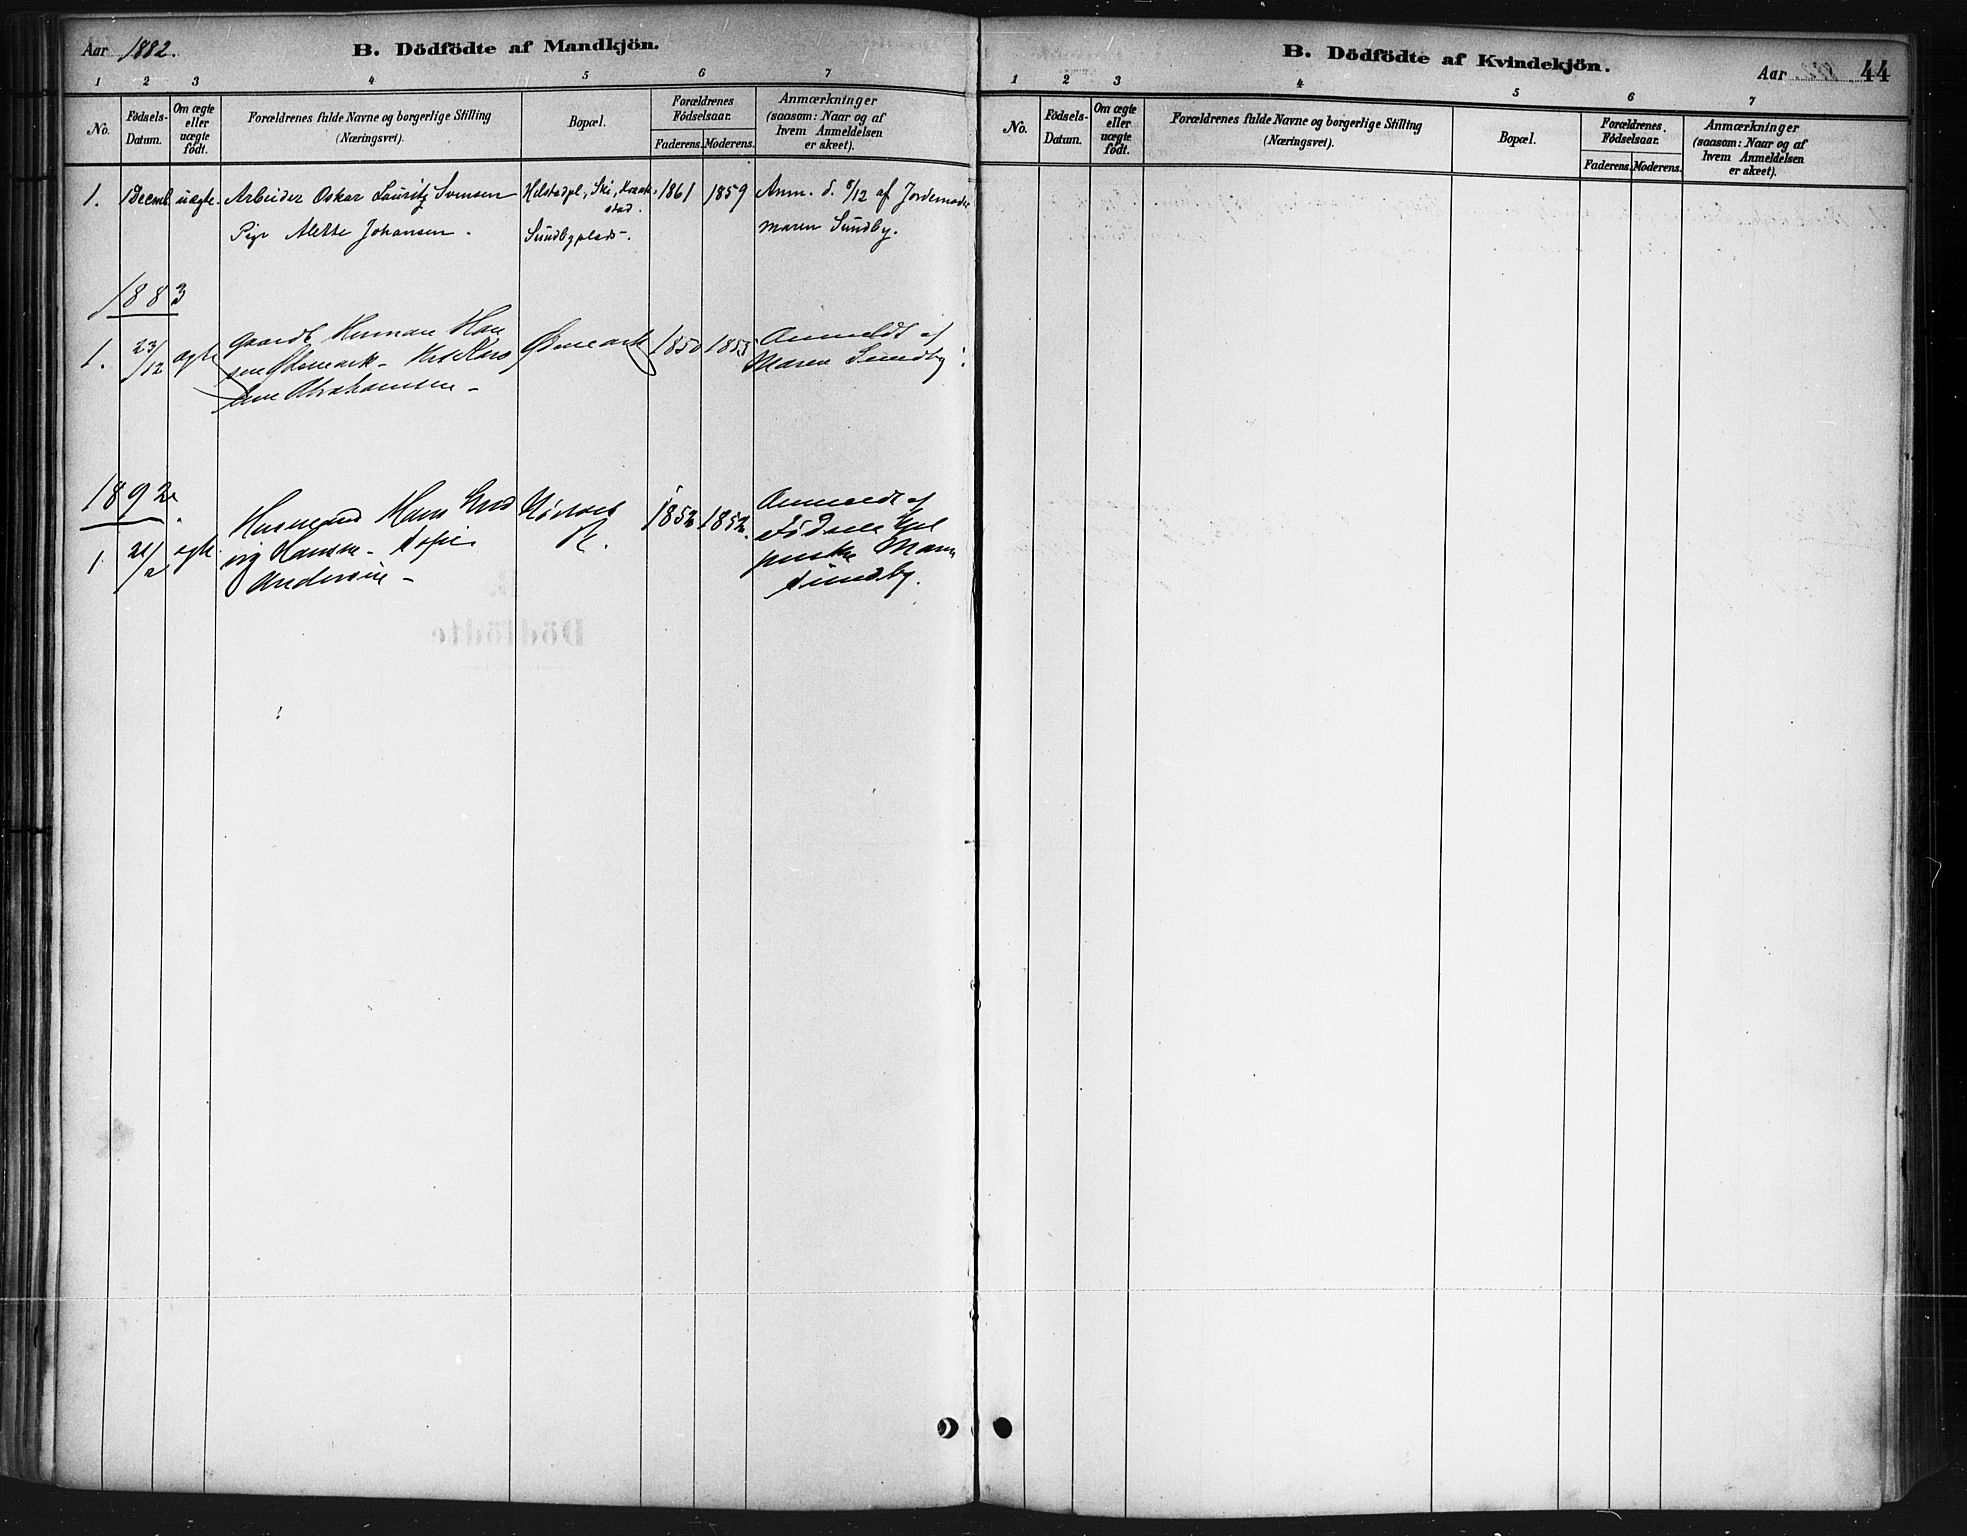 Aar 1882.
B. Dödfödte af Mandkjön.
1 2 3 4 5 6 7
No.
Födsels-
Datum.
Om ægte
eller
uægte
födt.
Forældrenes fulde Navne og borgerlige Stilling
(Næringsvei).
Bopæl.
Forældrenes
Födselsaar.
Faderens. Moderens.
Anmærkninger
(saasom: Naar og af
hvem Anmeldelsen
er skeet).
1. 1 Decmb. uægte. Arbeider Oskar Lauritz Svensen Helstadpl., Ski, Kraak- 1861 1859 Anm. d. 8/12 af Jordemoder
stad.
Pige Alette Johansen. Sundbyplads. Maren Sundby.
1883
1. 23/12 ægte Gaardb. Herman Han
sen Ødemark - 
Abrahamsen -
Ødemark 1850 1855 Anmeldt af
Maren Sundby.
1892.
1 ægte Husmand Hans Lud
vig Hansen - Sofie
Andersen -
1852 1852. Anmeldt af
Maren
Sundby.
B. Dödfödte af Kvindekjön.
Aar
44
1 2 3 4 5 6 7
No.
Födsels-
Datum.
Om ægte
eller
uægte
födt.
Forældrenes fulde Navne og borgerlige Stilling
(Næringsvei).
Bopæl.
Forældrenes
Födselsaar.
Faderens. Moderens.
Anmærkninger
(saasom: Naar og af
hvem Anmeldelsen
er skeet).